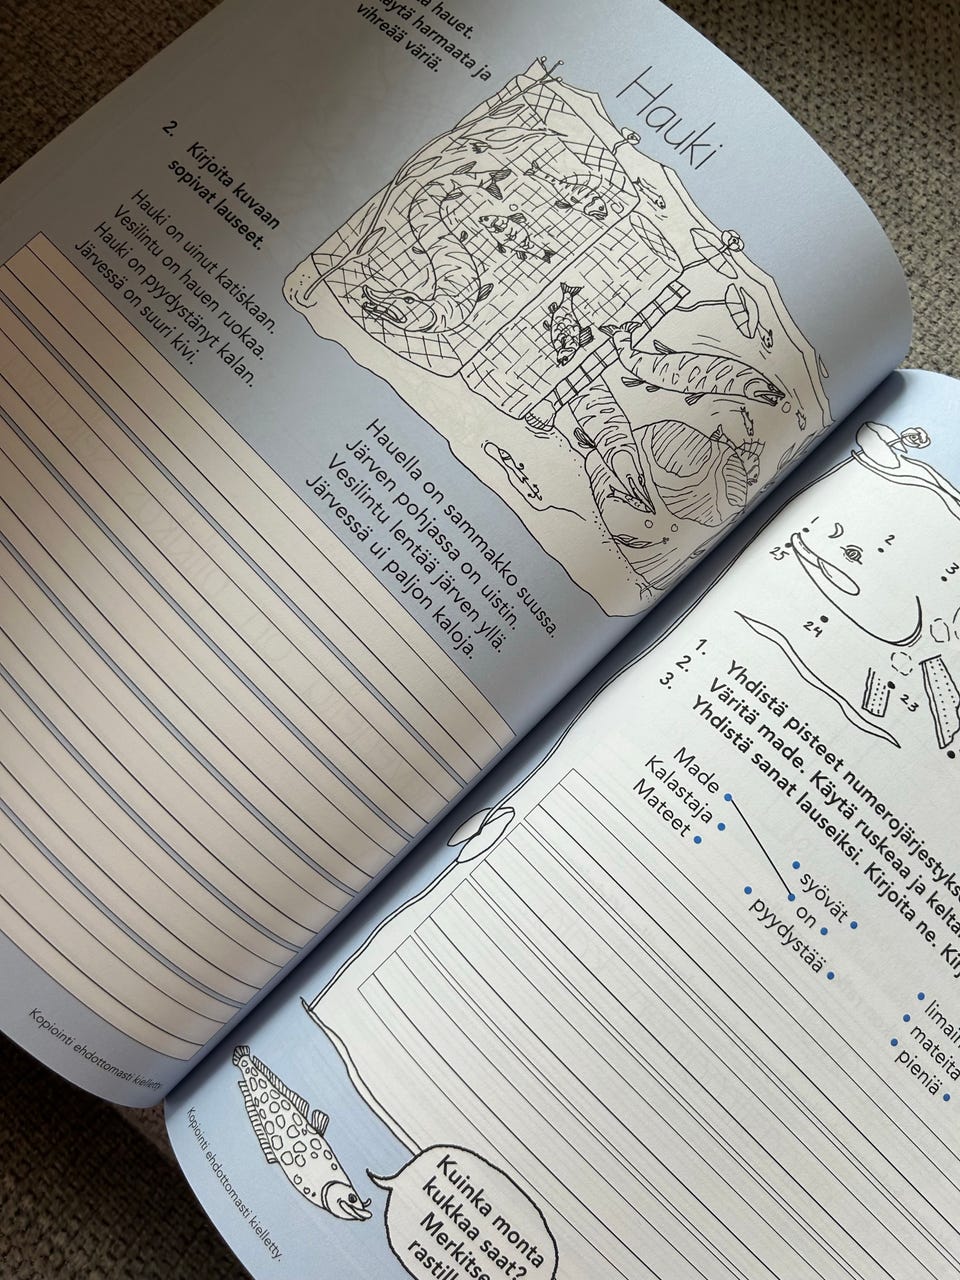 hauet.
harmaata ja
vihreää väriä.
Hauki
2. Kirjoita kuvaan
sopivat lauseet.
Hauki on uinut katiskaan.
Vesilintu on hauen ruokaa.
Hauki on pyydystänyt kalan.
Järvessä on suuri kivi.
Hauella on sammakko suussa.
Järven pohjassa on uistin.
Vesilintu lentää järven yllä.
Järvessä ui paljon kaloja.
Kopiointi ehdottomasti kielletty
1
2
3
25
24
23
1. Yhdistä pisteet
2. Väritä made. Käytä ruskeaa ja
3. Yhdistä sanat lauseiksi. Kirjoita ne.
Made
Kalastaja
Mateet
syövät
on
pyydystää
mateita
pieniä
Kopiointi ehdottomasti kielletty.
Kuinka monta
kukkaa saat?